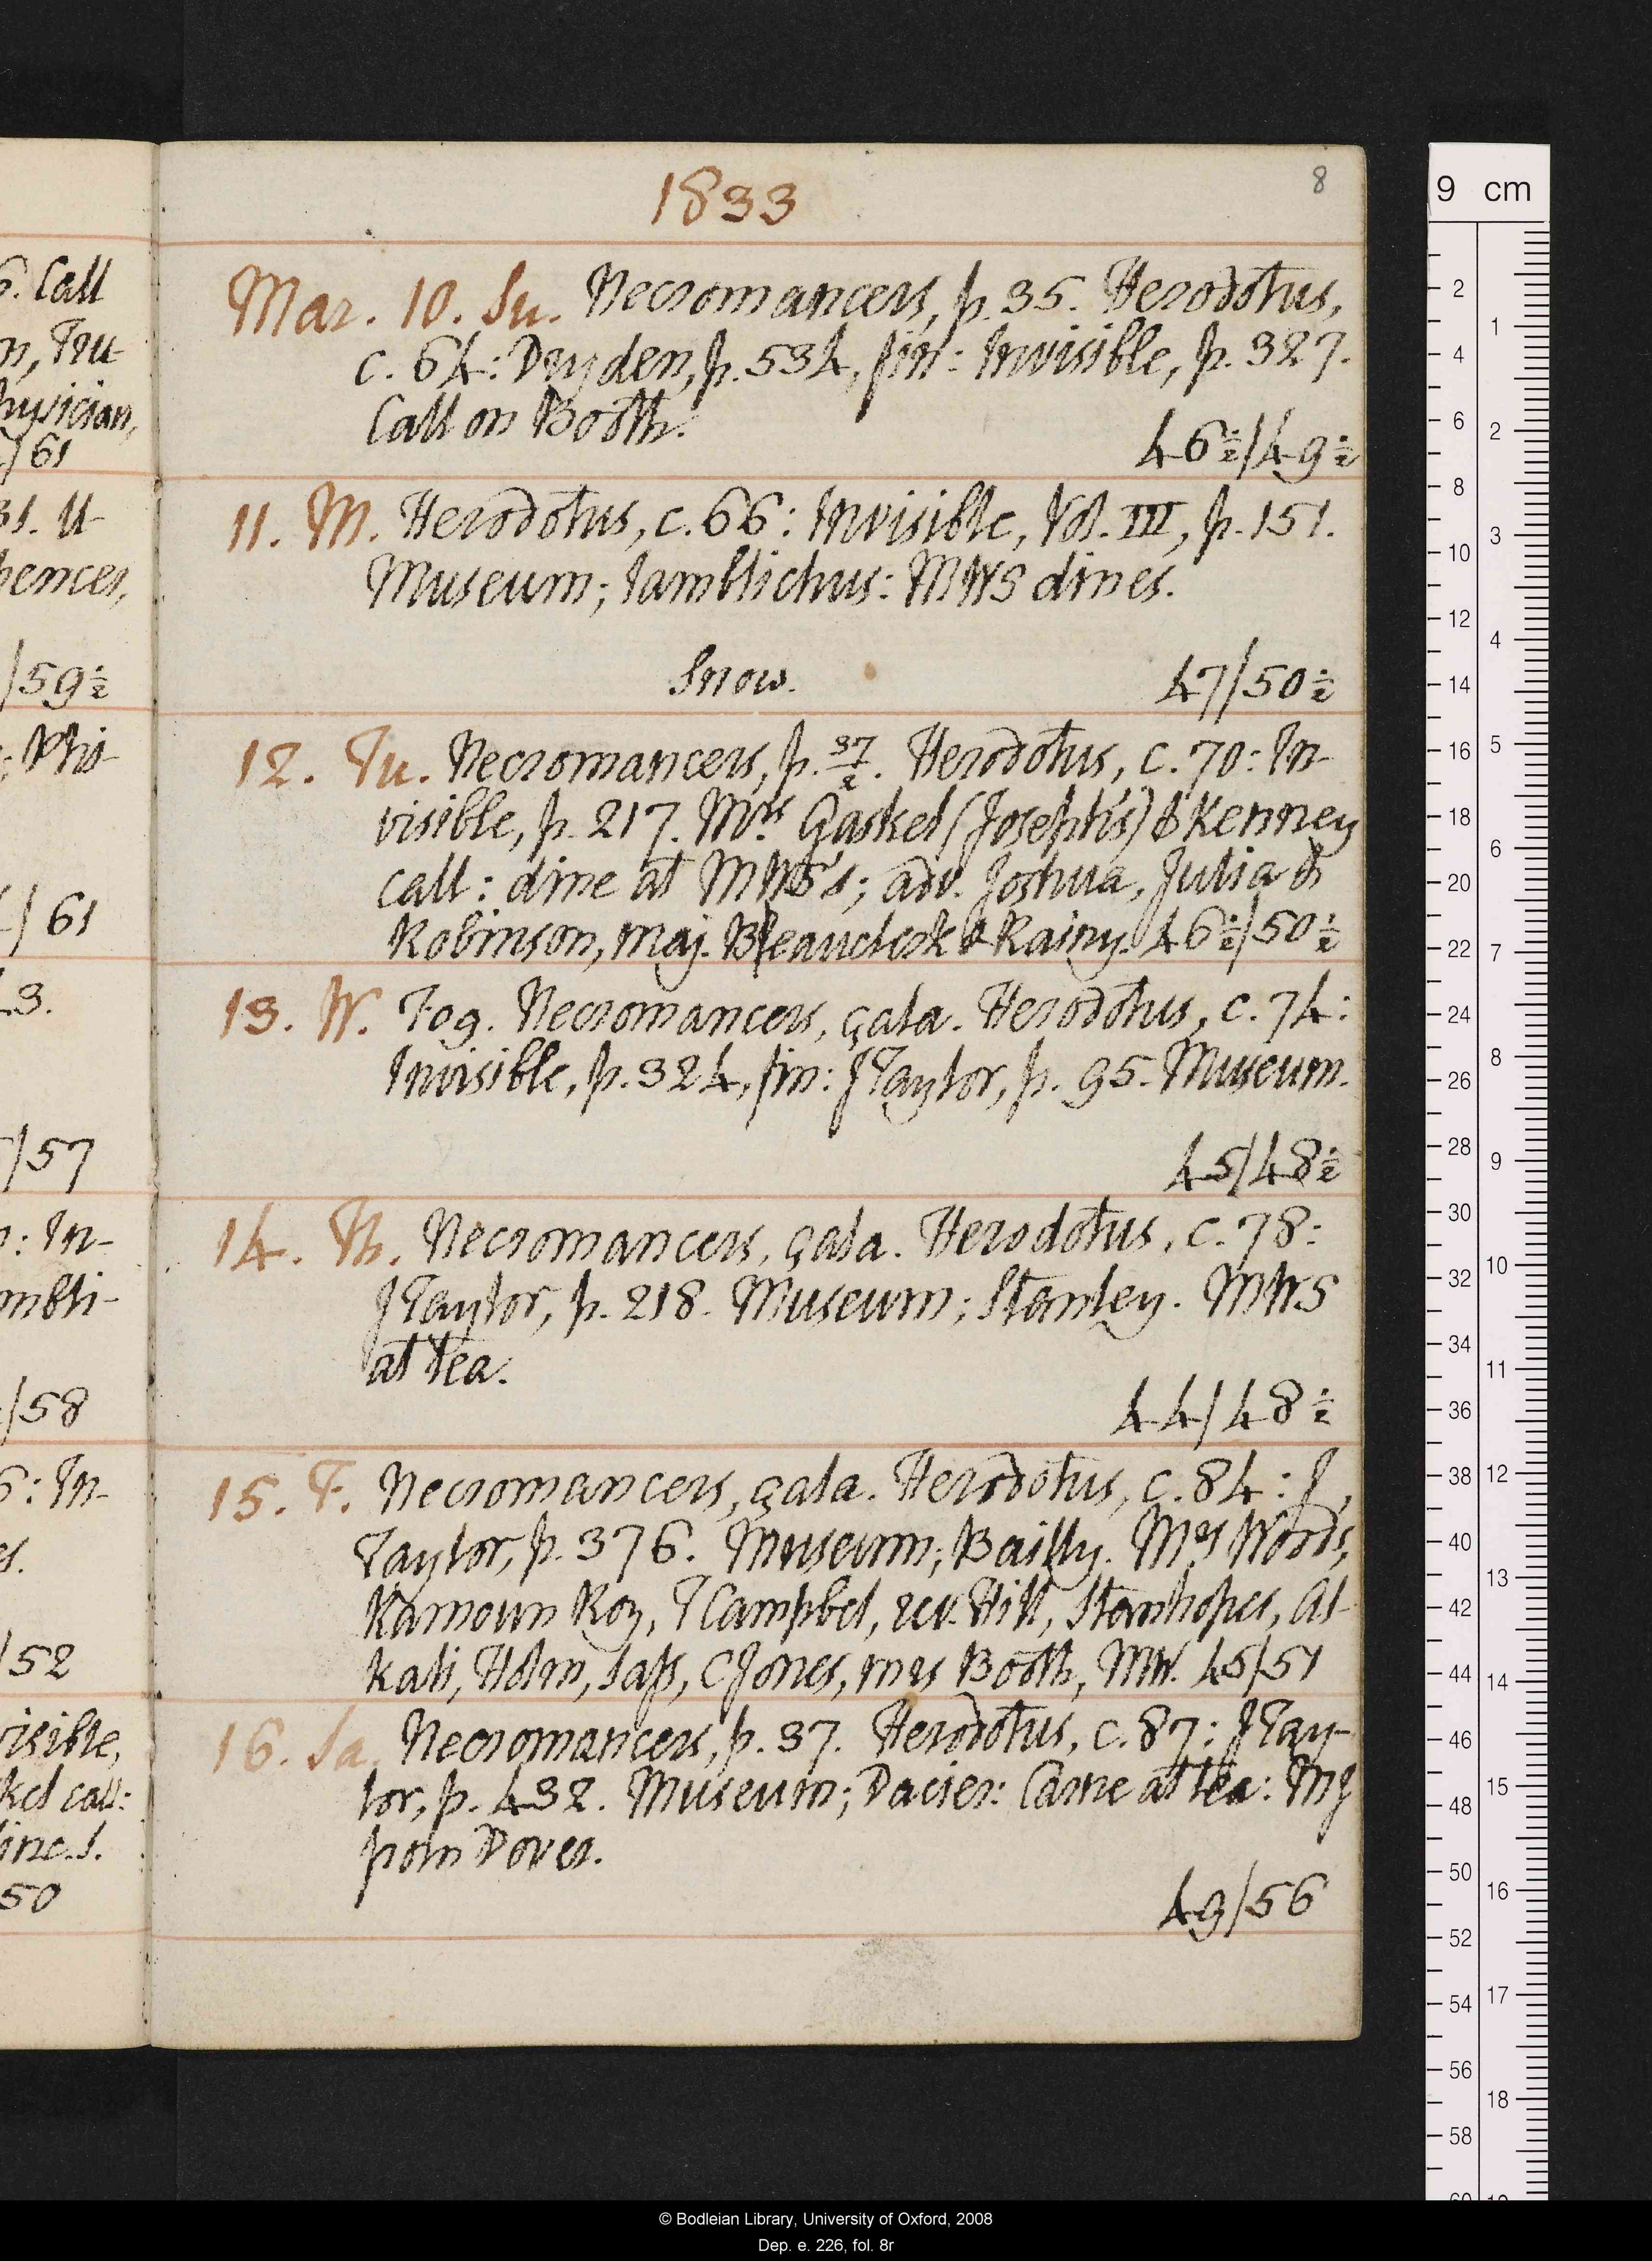 1833
8
Mar. 10. Su. Necromancers, p. 35. Herodotus,
c. 64: Dryden, p. 534, fin: Invisible, p. 327.
Call on Booth.
46½/49½
11. M. Herodotus, c. 66: Invisible, Vol. III, p. 151.
Museum; Iamblichus: MWS dines.
Snow. 47/50½
12. Tu. Necromancers, p. 37/2. Herodotus, c. 70: In-
visible, p. 217. Mrs Gaskel (Joseph's) & Kenney
call: dine at MWS's; adv. Joshua, Julia &
Robinson, maj. Beauclerk & Rainy. 46½/50½
13. W. Fog. Necromancers, çala. Herodotus, c. 74:
Invisible, p. 324, fin: J Taylor, p. 95. Museum.
45/48½
14. Th. Necromancers, çala. Herodotus, c. 78:
J Taylor, p. 218. Museum; Stanley. MWS
at tea.
44/48½
15. F. Necromancers, çala. Herodotus, c. 84: J
Taylor, p. 376. Museum; Bailly. Mrs Wods,
Ramoun Roy, T Campbel, rev. Hill, Stanhopes, Al-
kali, Holm, Sass, C Jones, mrs Booth, MW. 45/51
16. Sa. Necromancers, p. 37. Herodotus, c. 87: J Tay-
lor, p. 432. Museum; Dacier: Carne at tea: MJ
from Dover.
49/56
6. Call
n, Tru-
hysician,
/61
31. U-
hences,
/59½
/61
3.
/57
: In-
mbli-
/58
6: In-
es.
/52
visible,
kel call:
50
9 cm
© Bodleian Library, University of Oxford, 2008
Dep. e. 226, fol. 8r